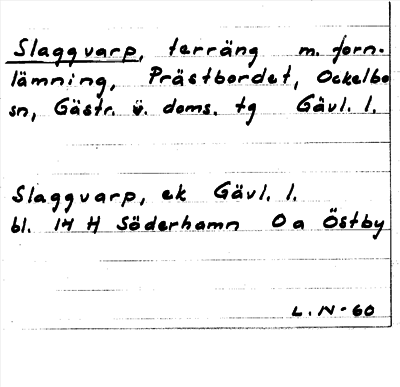 Slaggvarp, terräng m. forn-
lämning, Prästbordet, Ockelbo
sn, Gästr. ö. doms. tg Gävl. l.
Slaggvarp, ek Gävl. l.
bl. 14 H Söderhamn 0 a Östby
L. N-60